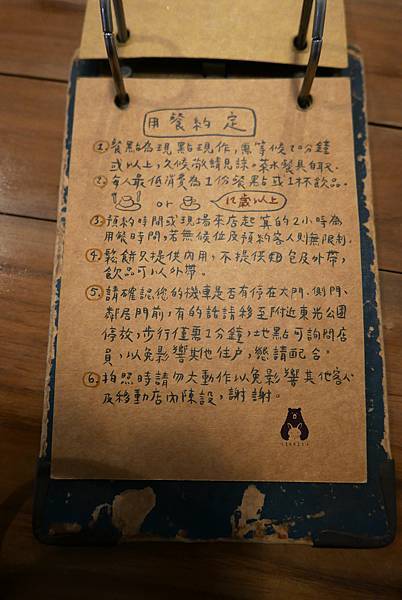 用餐約定
1. 餐點為現點現作,需等候20分鐘
或以上,久候敬請見諒。茶水餐具自取。
2. 每人最低消費為1份餐點或1杯飲品。
or
12歲以上
3. 預約時間或現場來店起算的2小時為
用餐時間,若無候位及預約客人則無限制。
4. 鬆餅只提供內用,不提供打包及外帶,
飲品可以外帶。
5. 請確認您的機車是否有停在大門、側門、
鄰居門前,有的話請移至附近東光公園
停放,步行僅需1分鐘,地點可詢問店
員,以免影響其他住戶,懇請配合。
6. 拍照時請勿大動作以免影響其他客人
及移動店內陳設,謝謝。